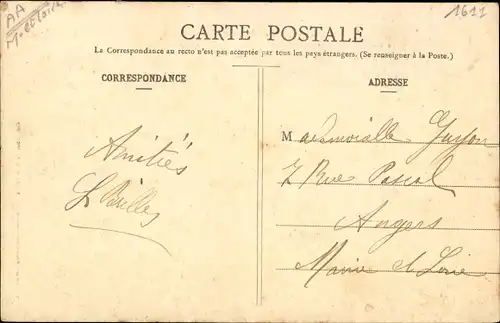 AA
1611
CARTE POSTALE
La Correspondance au recto n'est pas acceptée par tous les pays étrangers. (Se renseigner à la Poste.)
CORRESPONDANCE
ADRESSE
Amitiés
Mademoiselle
7 Rue Pascal
Angers
Maine et Loire